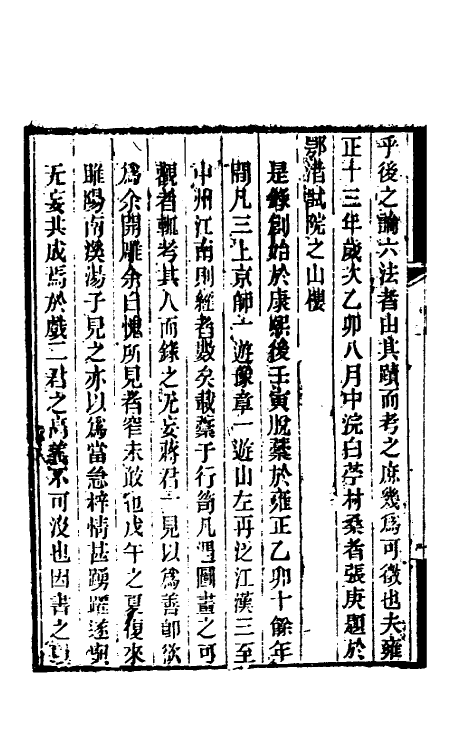 乎後之論六法者由其蹟而考之庶幾爲可徵也夫雍
正十三年歲次乙卯八月中浣白苧村桑者張庚題於
鄂渚試院之山樓
是錄創始於康熙後壬寅脫藁於雍正乙卯十餘年
間凡三上京師一遊豫章一遊山左再泛江漢三至
中州江南則經者數矣載藁子行笥凡遇圖畫之可
觀者輒考其人而錄之无妄蔣君一見以爲善即欲
爲余開雕余自愧所見者窄未敢也戊午之夏復來
睢陽南溪湯子見之亦以爲當急梓情甚踴躍遂與
无妄共成焉於戲二君之高義不可沒也因書之